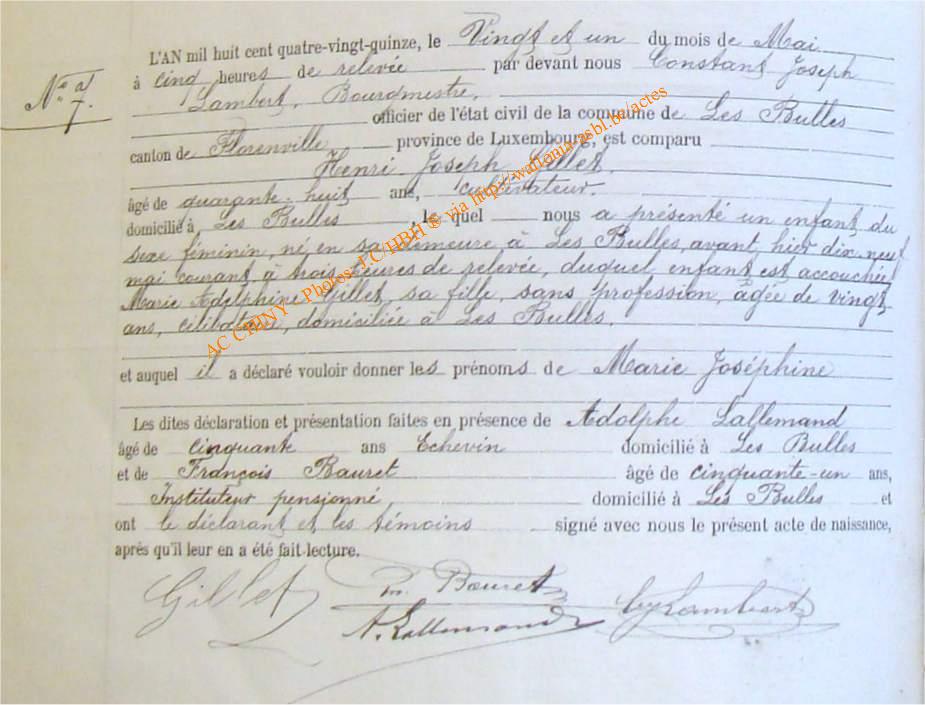 L'AN mil huit cent quatre-vingt-quinze, le Vingt et un du mois de Mai
à cinq heures de relevée par devant nous Constant Joseph
Lambert, Bourgmestre,
officier de l'état civil de la commune de Les Bulles
canton de Florenville province de Luxembourg, est comparu
Henri Joseph Gillet
âgé de quarante-huit ans, cultivateur.
domicilié à Les Bulles, lequel nous a présenté un enfant du
sexe féminin, né en sa demeure, à Les Bulles, avant hier dix neuf
mai courant à trois heures de relevée, duquel enfant est accouchée
Marie Adelphine Gillet, sa fille, sans profession, âgée de vingt
ans, célibataire, domiciliée à Les Bulles.
et auquel il a déclaré vouloir donner les prénoms de Marie Joséphine
Les dites déclaration et présentation faites en présence de Adolphe Lallemand
âgé de cinquante ans Echevin domicilié à Les Bulles
et de François Bauret âgé de cinquante-un ans,
Instituteur pensionné, domicilié à Les Bulles et
ont le déclarant et les témoins signé avec nous le présent acte de naissance,
après qu'il leur en a été fait lecture.
Gillet Bauret
A. Lallemand Lambert
N°
7.
AC CHINY - Photos J.C/HBH © via http://wallonia-asbl.be/actes